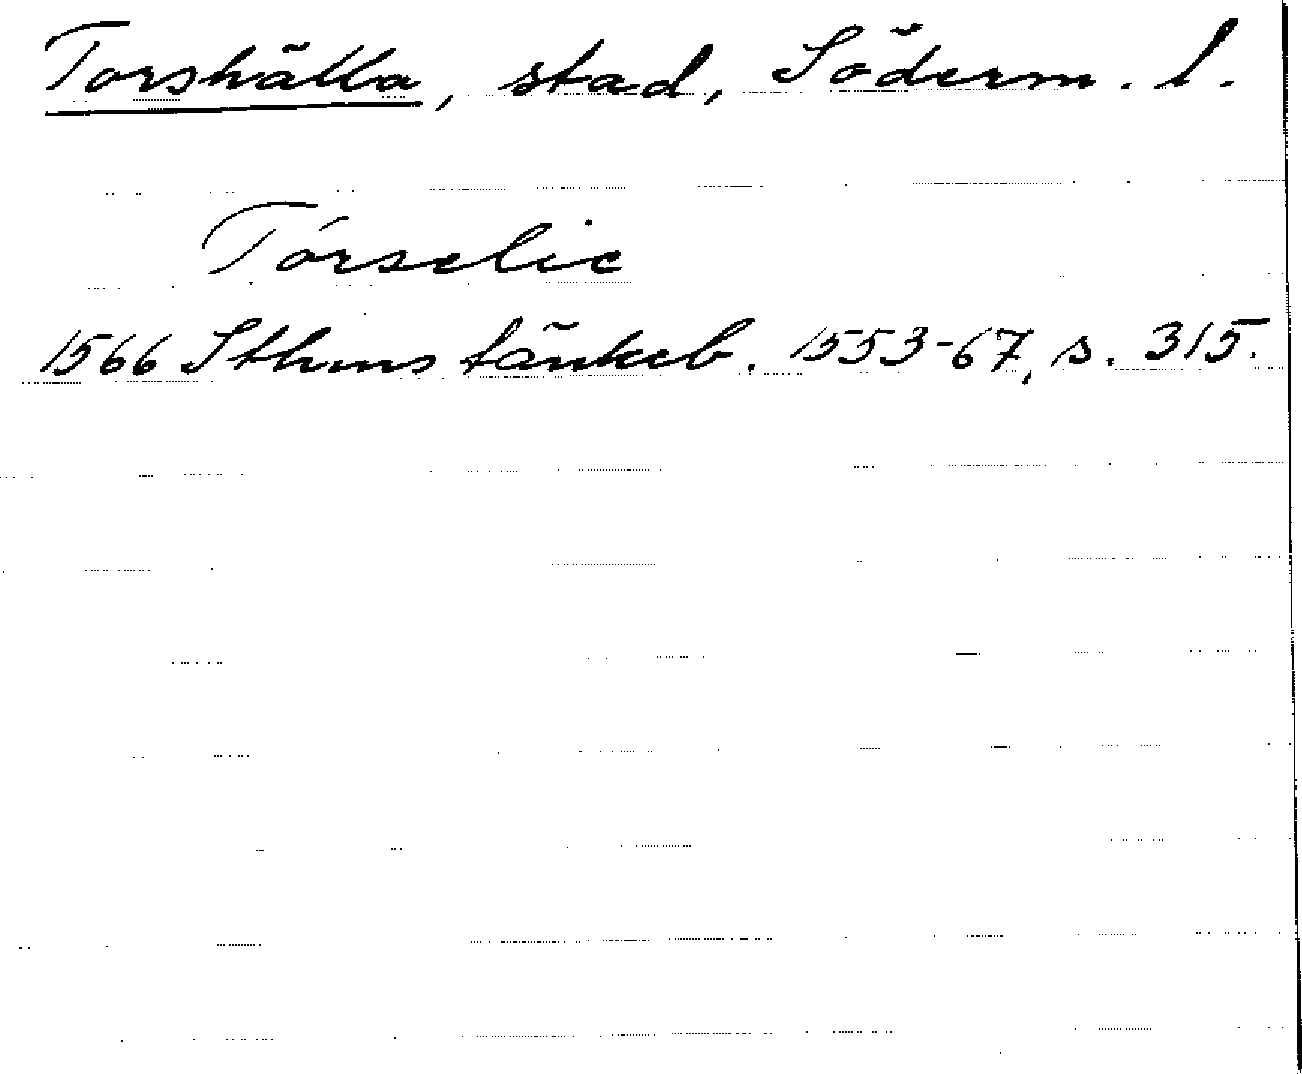 Torshälla, stad, Söderm. l.
Tórselie
1566 Sthms tänkeb. 1553-67, s. 315.